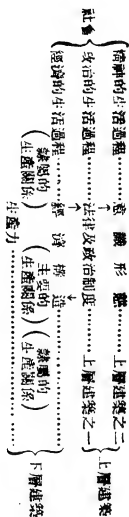 社會
精神的生活過程……意識形態……上層建築之二
政治的生活過程……法律及政治制度……上層建築之一
上層建築
經濟的生活過程……經濟構造
(隸屬的生產關係)(主要的生產關係)(隸屬的生產關係)
生產力……
下層建築